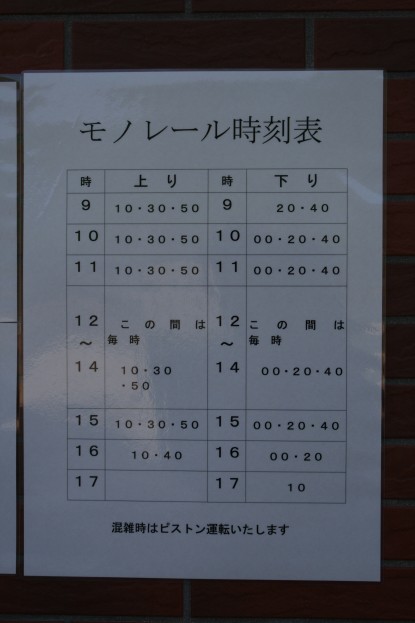 モノレール時刻表
時 上り 時 下り
9 10・30・50 9 20・40
10 10・30・50 10 00・20・40
11 10・30・50 11 00・20・40
12 この間は 12 この間は
～ 毎時 ～ 毎時
14 10・30 14 00・20・40
・50
15 10・30・50 15 00・20・40
16 10・40 16 00・20
17 17 10
混雑時はピストン運転いたします